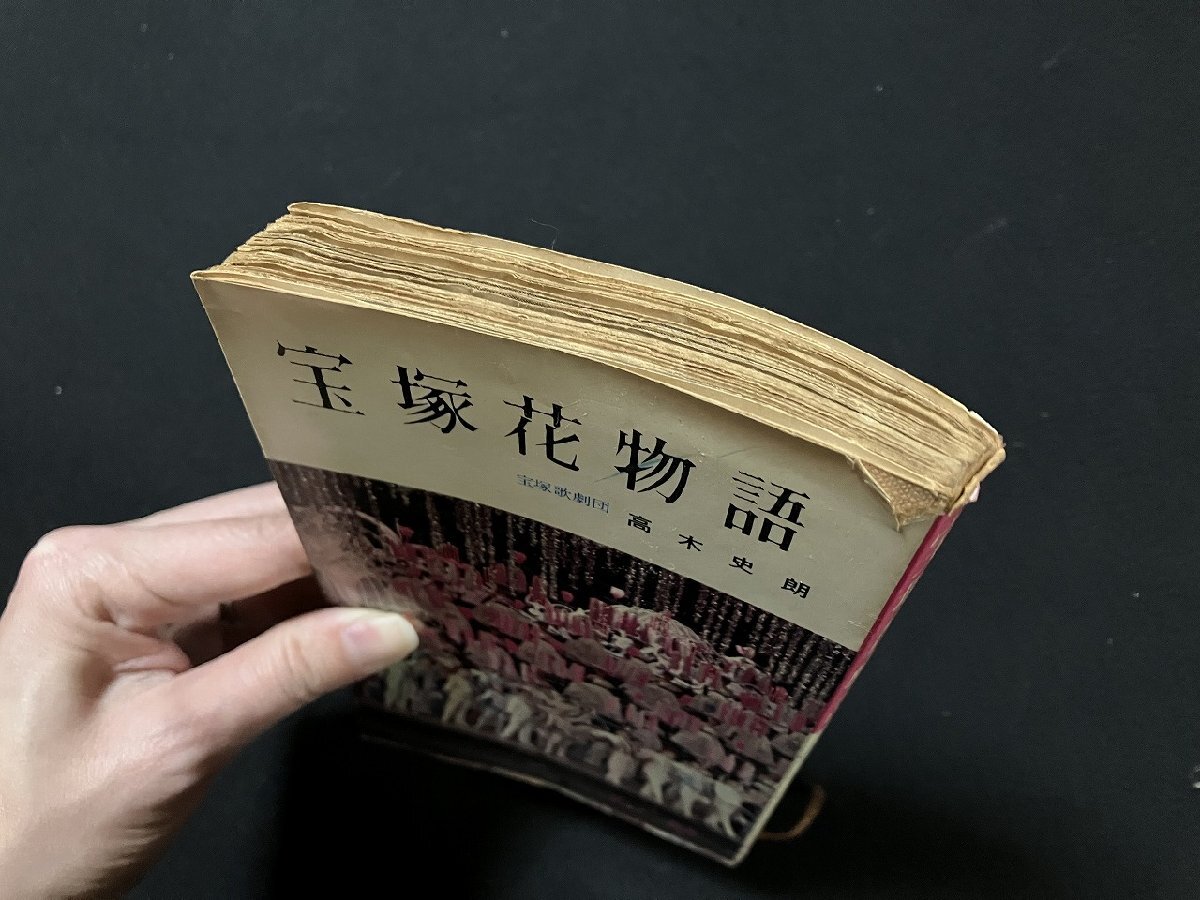 宝塚花物語
宝塚歌劇団
高木史朗